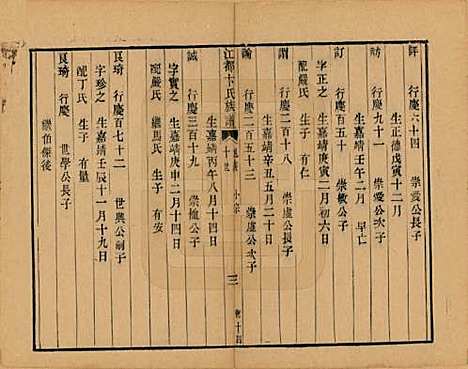 詳　行慶六十四　崇愛公長子
生正德戊寅十二月
訪　行慶九十一　崇愛公次子
生嘉靖壬午二月　早亡
訂　行慶百五十　崇敏公子
字正之　生嘉靖庚寅二月初六日
配嚴氏　生子　有仁
謂　行慶二百十八　崇虛公長子
生嘉靖辛丑五月二十日
諭　行慶二百五十三　崇虛公次子
江都卞氏族譜
十世
三
生嘉靖丙午八月十四日
誠　行慶三百十九　崇檤公子
字實之　生嘉靖庚申二月十四日
配嚴氏　繼馬氏　生子　有安
良琦　行慶百七十二　世興公嗣子
字珍之　生嘉靖壬辰十一月十九日
配丁氏　生子　有量
良琦　行慶　世學公長子
繼伯傑後